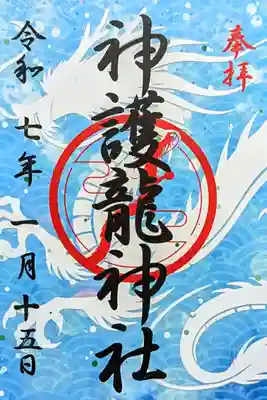 奉拝
神護龍神社
令和七年一月十五日